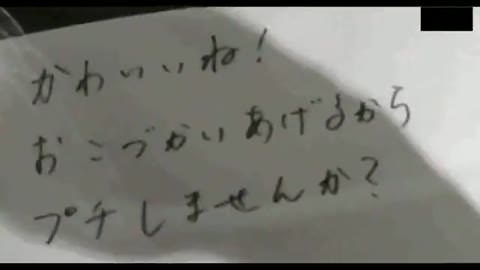 かわいいね!
おこづかいあげるから
プチしませんか?